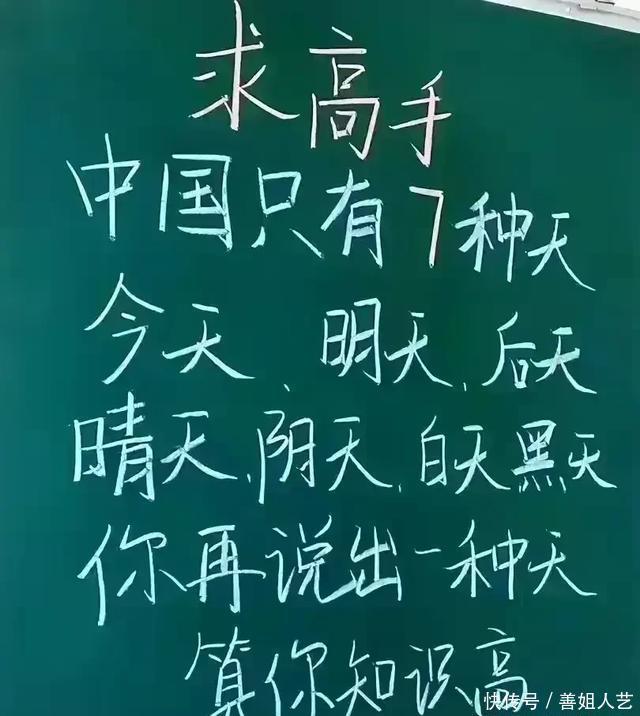 求高手
中国只有7种天
今天、明天、后天
晴天、阴天、白天黑天
你再说出一种天
算你知识高
快传号/善姐人艺